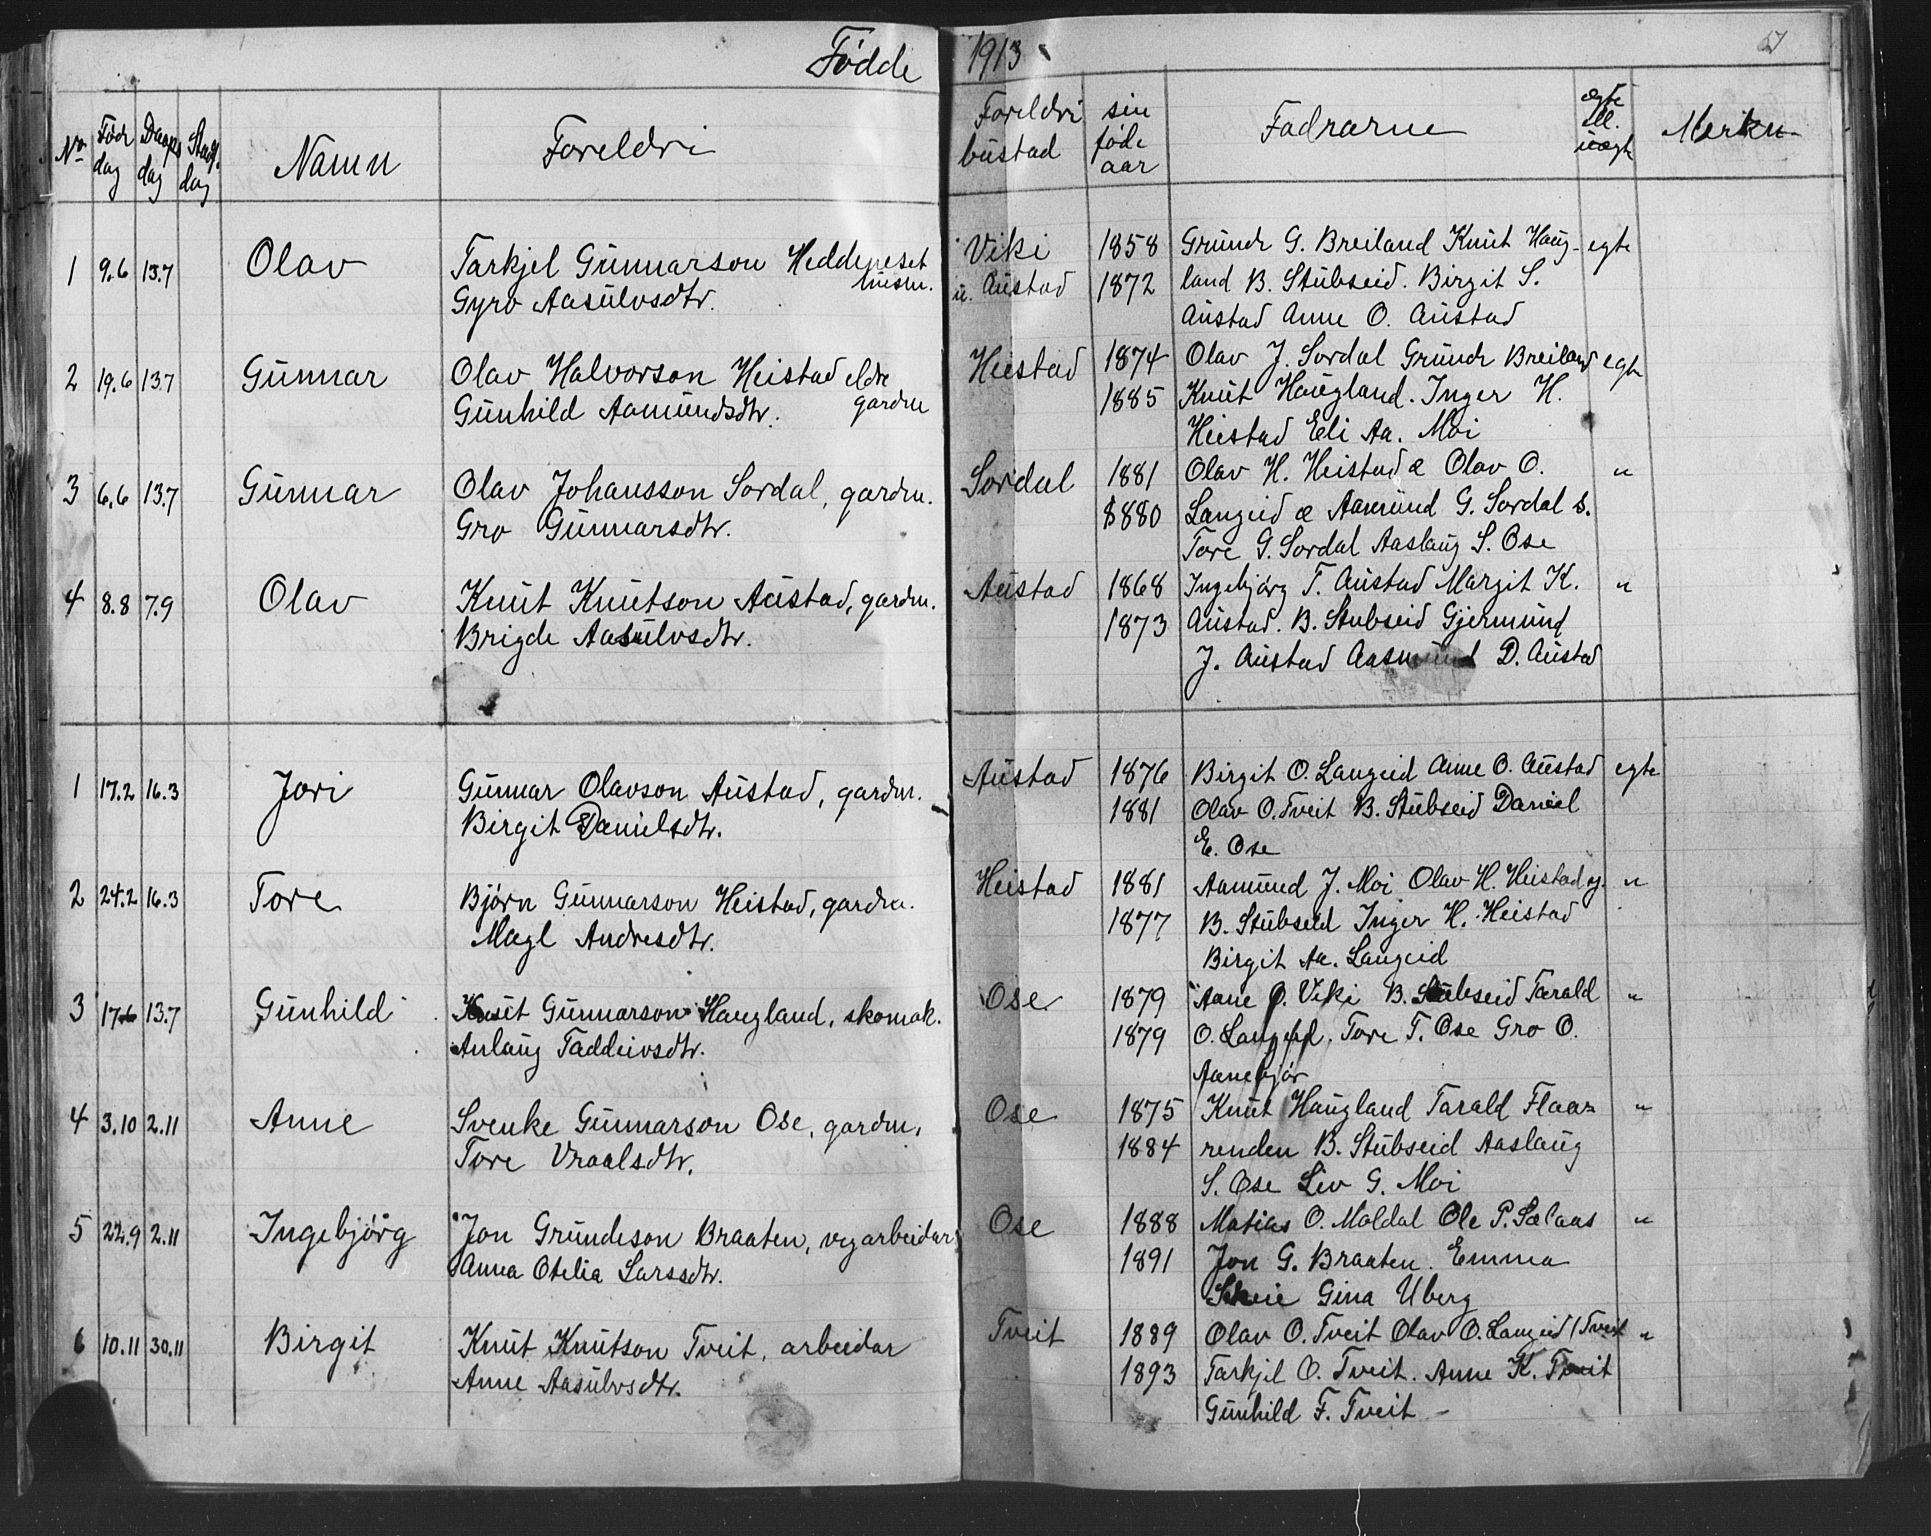 Fødde 1913
No Fødedag Daapsdag Stadf. dag Namn Foreldri Foreldri bustad sin føde aar Fadrarne egte ell. uegt Merkn
1 9.6 13.7 Olav Tarkjel Gunnarson Heddeneset Viki 1858 Grunde G. Breiland Knut Haug- egte
husm. Gyro Aasulvsdtr. u. Austad 1872 land B. Stubseid. Birgit S.
Austad Anne O. Austad
2 19.6 13.7 Gunnar Olav Halvorson Heistad eldre Heistad 1874 Olav J. Sordal Grunde Breiland egte
Gunhild Aamundsdtr. gardm 1885 Knut Haugland. Inger H.
Heistad Eli Aa. Moi
3 6.6 13.7 Gunnar Olav Johansson Sordal, gardm. Sordal 1881 Olav H. Heistad æ Olav O. "
Gro Gunnarsdtr. 1880 Langeid æ Aamund G. Sordal s.
Tore G. Sordal Aaslaug S. Ose
4 8.8 7.9 Olav Knut Knutson Austad, gardm. Austad 1868 Ingebjørg T. Austad Margit K. "
Brigde Aasulvsdtr. 1873 Austad. B. Stubseid Gjermund
J. Austad Aasmund D. Austad
1 17.2 16.3 Jori Gunnar Olavson Austad, gardm. Austad 1876 Birgit O. Langeid Anne O. Austad egte
Birgit Danielsdtr. 1881 Olav O. Tveit B. Stubseid Daniel
E. Ose
2 24.2 16.3 Tore Bjørn Gunnarson Heistad, gardm. Heistad 1881 Aamund J. Moi Olav H. Heistad y. "
Magl Andresdtr. 1877 B. Stubseid Inger H. Heistad
Birgit Aa. Langeid
3 17.6 13.7 Gunhild Knut Gunnarson Haugland, skomak. Ose 1879 Aane O. Viki B. Stubseid Tarald "
Anlaug Taddeivsdtr. 1879 O. Langeid. Tore T. Ose Gro O.
Aanebjør
4 3.10 2.11 Anne Svenke Gunnarson Ose, gardm. Ose 1875 Knut Haugland Tarald Flaar- "
Tore Vraalsdtr. 1884 renden B. Stubseid Aaslaug
S. Ose Liv G. Moi
5 22.9 2.11 Ingebjørg Jon Grundeson Braaten, vegarbeidar Ose 1888 Matias O. Moldal Ole P. Sælaas "
Anna Otelia Larssdtr. 1891 Jon G. Braaten. Emma
Skeie Gina Uberg
6 10.11 30.11 Birgit Knut Knutson Tveit, arbeidar Tveit 1889 Olav O. Tveit Olav O. Langeid / Tveit "
Anne Aasulvsdtr. 1893 Tarkjel O. Tveit. Anne K. Tveit
Gunhild F. Tveit -